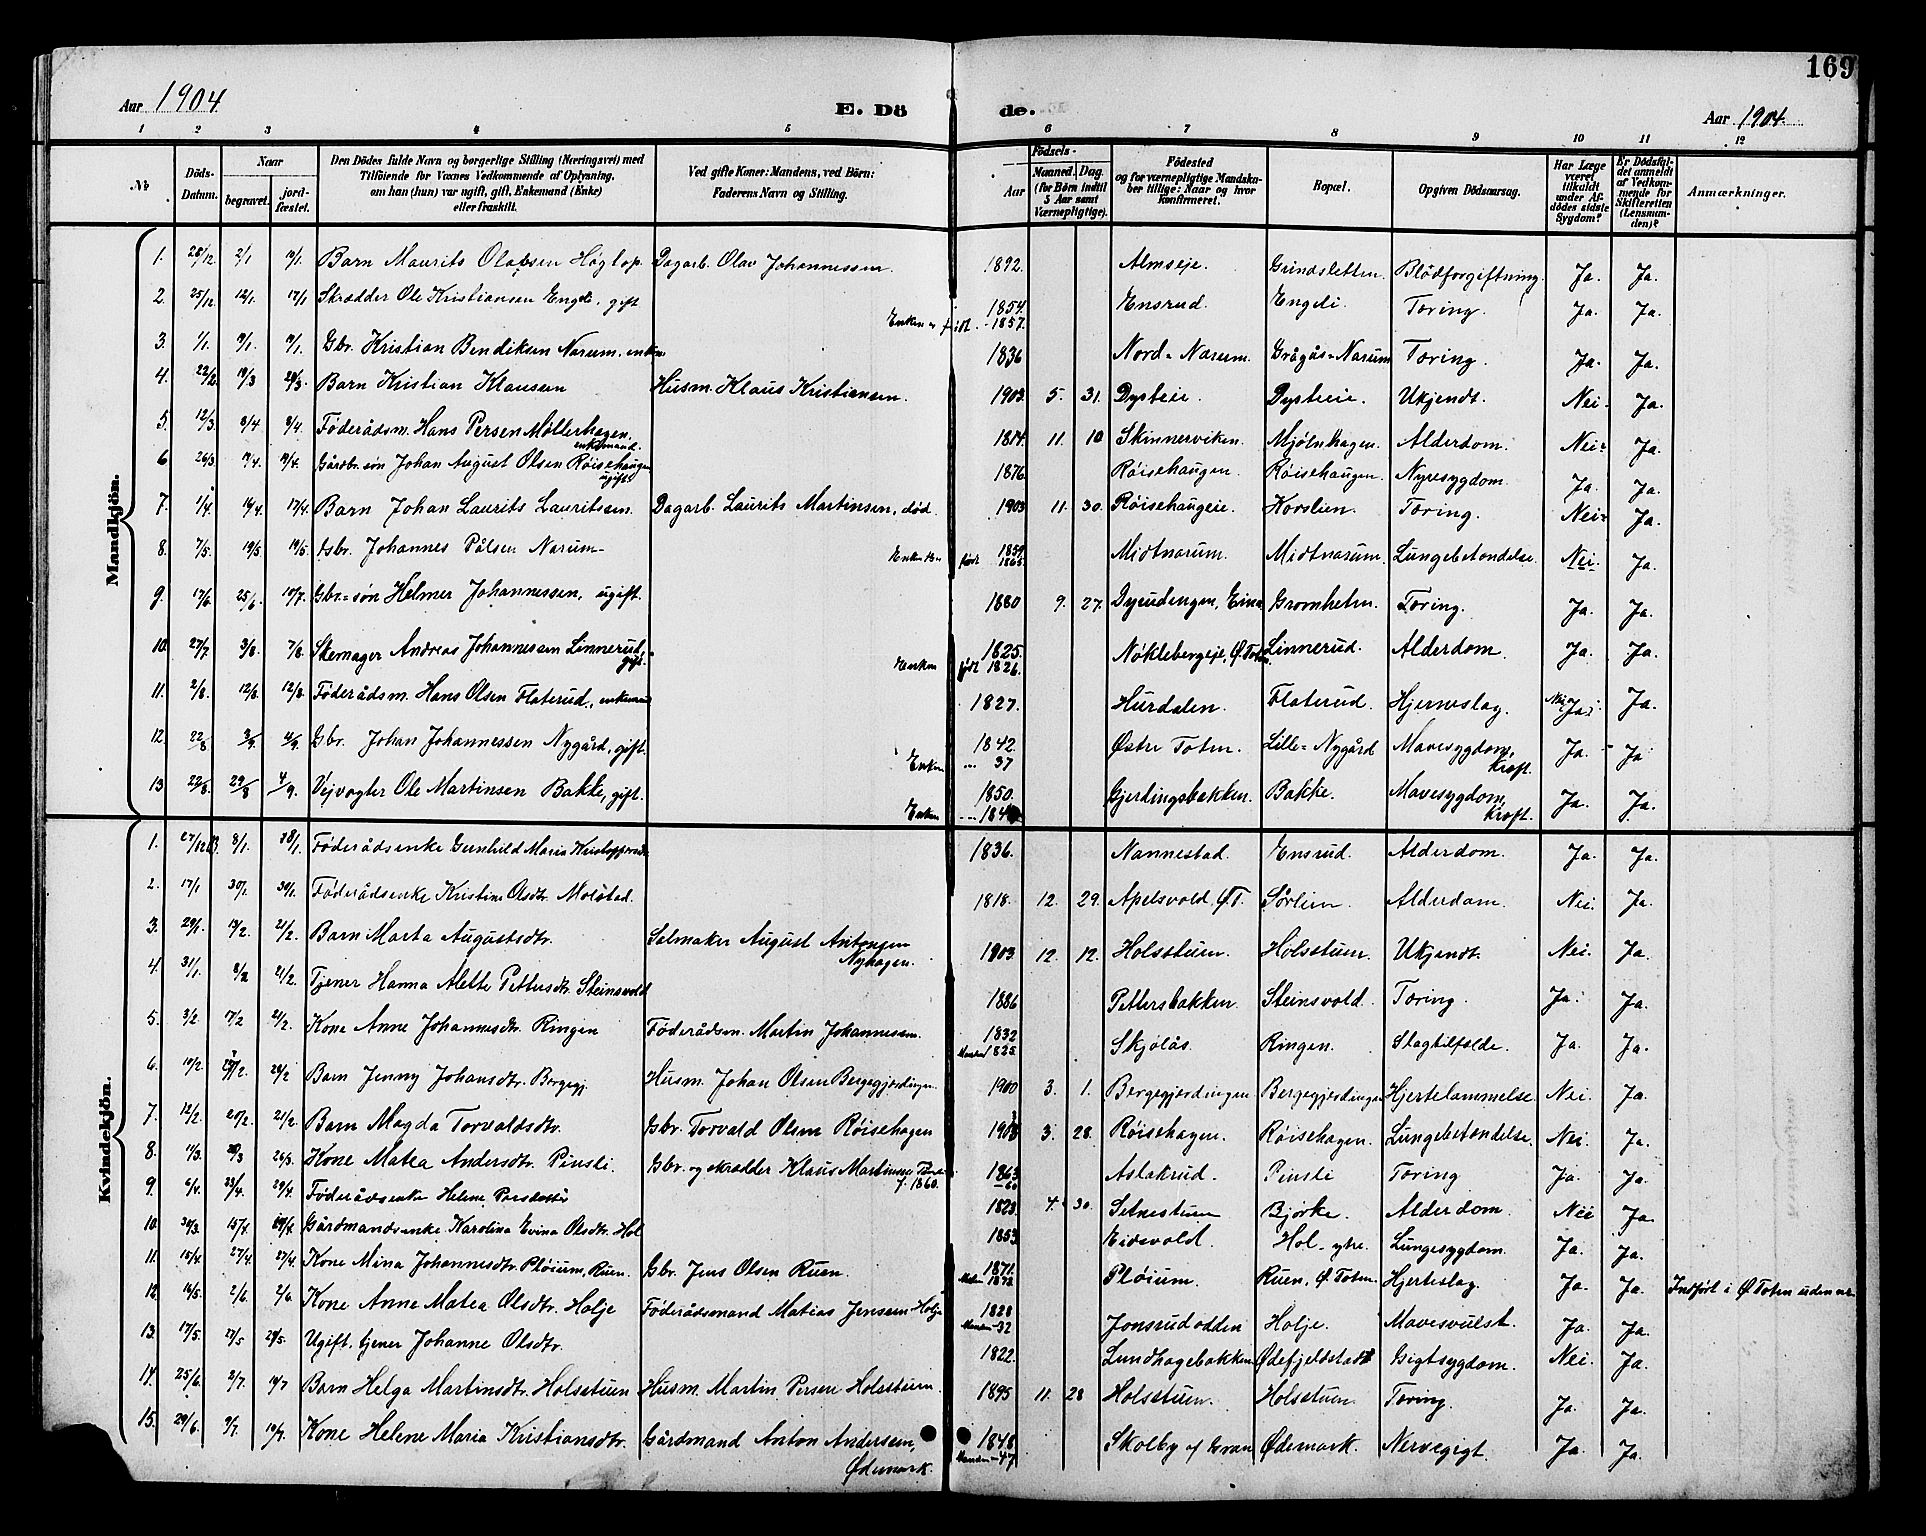 169
Aar 1904. E. Dö de. Aar 1904.
1 2 3 4 5 6 7 8 9 10 11 12
№ Döds-Datum. Naar begravet. jordfæstet. Den Dödes fulde Navn og borgerlige Stilling (Næringsvei) med Tilföiende for Voxnes Vedkommende af Oplysning, om han (hun) var ugift, gift, Enkemand (Enke) eller fraskilt. Ved gifte Koner: Mandens, ved Börn: Faderens Navn og Stilling. Födsels- Aar Maaned. Dag. (for Börn indtil 5 Aar samt Værnepligtige). Födested og for værnepligtige Mandskaber tillige: Naar og hvor konfirmeret. Bopæl. Opgiven Dödsaarsag. Har Læge været tilkaldt under Afdödes sidste Sygdom? Er Dödsfaldet anmeldt af Vedkommende for Skifteretten (Lensmanden)? Anmærkninger.
Mandkjön.
1. 28/12 2/1 10/1. Barn Maurits Olavsen Höglop. Dagarb. Olav Johannessen. 1892. Almseje. Grindsletten. Blodforgiftning. Ja. Ja.
2. 25/12 12/1. 17/1 Skrædder Ole Kristiansen Engeli, gift Enken født 1854. -1857. Ensrud. Engeli. Tæring. Ja. Ja.
3. 1/1. 9/1. 9/1. Gbr. Kristian Bendiksen Narum. enkem 1836 Nord-Narum. Grågås-Narum Tæring. Ja. Ja.
4. 22/2. 19/3 20/3. Barn Kristian Klausen Husm. Klaus Kristiansen. 1903. 5. 31. Dysteie. Dysteie. Ukjendt. Nei. Ja.
5. 12/3. 8/4. 8/4. Föderådsm. Hans Persen Möllerhagen, enkemand. 1814. 11. 10 Skinnerviken. Mjölnhagen. Alderdom. Nei. Ja.
6 26/3. 9/4. 10/4. Gårdbr. sön Johan August Olsen Röisehaugen ugift. 1876. Röisehaugen. Röisehaugen. Nyresygdom. Ja. Ja.
7. 1/4. 16/4. 17/4. Barn Johan Laurits Lauritsen. Dagarb. Laurits Martinsen, död. 1903 11. 30. Röisehaugeie. Korslien. Tæring. Nei. Ja.
8. 7/5. 19/5 19/5. Gbr. Johannes Pålsen Narum- Enken født 1854. 1865. Midtnarum. Midtnarum. Lungebetændelse. Nei. Ja.
9. 17/6. 25/6. 10/7. Gbr.-sön Helmer Johannessen, ugift. 1880 9. 27. Dyeudengen, Eina Gromheim. Tæring. Ja. Ja.
10. 27/7. 3/8. 7/8. Skomager Andreas Johannessen Linnerud, gift. Enken født 1825. 1826. Nöklebergeje, Ø. Toten. Linnerud. Alderdom. Ja. Ja.
11. 2/8. 12/8. 12/8. Föderådsm. Hans Olsen Flaterud, enkemand 1827. Hurdalen. Flaterud. Hjerneslag. Nei Ja. Ja.
12. 22/8 3/9. 4/9. Gbr. Johan Johannessen Nygård, gift. Enken 1842. 37 Østre Toten. Lille-Nygård Mavesygdom, Kræft. Ja. Ja
13 22/8. 29/8 4/9. Vejvogter Ole Martinsen Bakke, gift. Enken 1850. Gjerdingsbakken. Bakke. Mavesygdom, Kræft. Ja. Ja.
Kvindekjön.
1. 27/12 03. 8/1. 18/1. Föderådsenke Gunhild Maria Kristoffersdtr 1836. Nannestad. Ensrud. Alderdom. Ja. Ja.
2. 17/1 30/1. 30/1. Föderådsenke Kristine Olsdtr. Molstad. 1818. 12. 29. Apelsvold, Ø. T. Sörlien. Alderdom. Nei. Ja.
3. 29/1. 13/2. 21/2. Barn Marta Augustsdtr. Salmaker August Antonsen Nyhagen. 1903. 12. 12. Holsstuen. Holsstuen. Ukjendt. Nei. Ja.
4. 31/1. 8/2 21/2. Tjener Hanna Alette Pettersdtr. Steinsvold 1886 Pettersbakken. Steinsvold. Tæring. Ja. Ja.
5. 3/2. 17/2 21/2. Kone Anne Johannesdtr. Ringen Föderådsm. Martin Johannessen. 1832 Manden 1825. Skjölås Ringen. Slagtilfælde. Ja. Ja.
6. 10/2. 28/2 Barn Jenny Johansdtr. Bergegj. Husm. Johan Olsen Bergegjordingen. 1900 3. 1. Bergegjordingen Bergegjordingen Hjertelammelse Nei. Ja.
7. 12/2. 20/2. 21/2. Barn Magda Torvaldsdtr. Gbr. Torvald Olsen Röisehagen 1903 3. 28. Röisehagen. Röisehagen. Lungebetændelse. Nei. Ja.
8. 11/3. 20/3 26/3. Kone Matea Andersdtr. Pinsli. Gbr. og skrædder Klaus Martinsen f. 1860. 1863 -60 Aslakrud Pinsli Tæring Ja. Ja.
9. 6/4. 23/4. 24/4. Föderådsenke Helene Persdatter 1823 4. 30. Setnestuen Bjørke. Alderdom. Nei Ja.
10. 30/3. 15/4. 24/4. Gårdmandsenke Karolina Evina Olsdtr. Hol 1853 Eidsvold. Hol-ytre. Lungesygdom. Ja. Ja.
11. 15/4. 27/4. 27/4. Kone Mina Johannesdtr. Plöium, Ruen. Gbr. Jens Olsen Ruen. 1871. Manden 1872. Plöium. Ruen, Ø. Toten. Hjerteslag. Ja. Ja. Indfört i Ø. Toten uden nr.
12. 14/5. 2/6. 2/6. Kone Anne Matea Olsdtr. Holje Föderådsmand Matias Jenssen Holje 1828 Manden -32 Jonsrudodden Holje. Mavesvulst. Ja. Ja.
13. 17/5. 27/5 29/5. Ugift. tjener Johanne Olsdtr. 1822. Lundhagebakken Ødefjeldstad Gigtsygdom. Nei. Ja.
14. 25/6. 2/7. 10/7 Barn Helga Martinsdtr. Holsstuen Husm. Martin Persen Holsstuen. 1895 11. 28 Holsstuen. Holsstuen Tæring. Ja. Ja.
15. 29/6. 9/7. 10/7. Kone Helene Maria Kristiansdtr. Gårdmand Anton Andersen, Ødemark. 1848 Manden -47 Skolby i Gran Ødemark. Nervegigt. Ja. Ja.